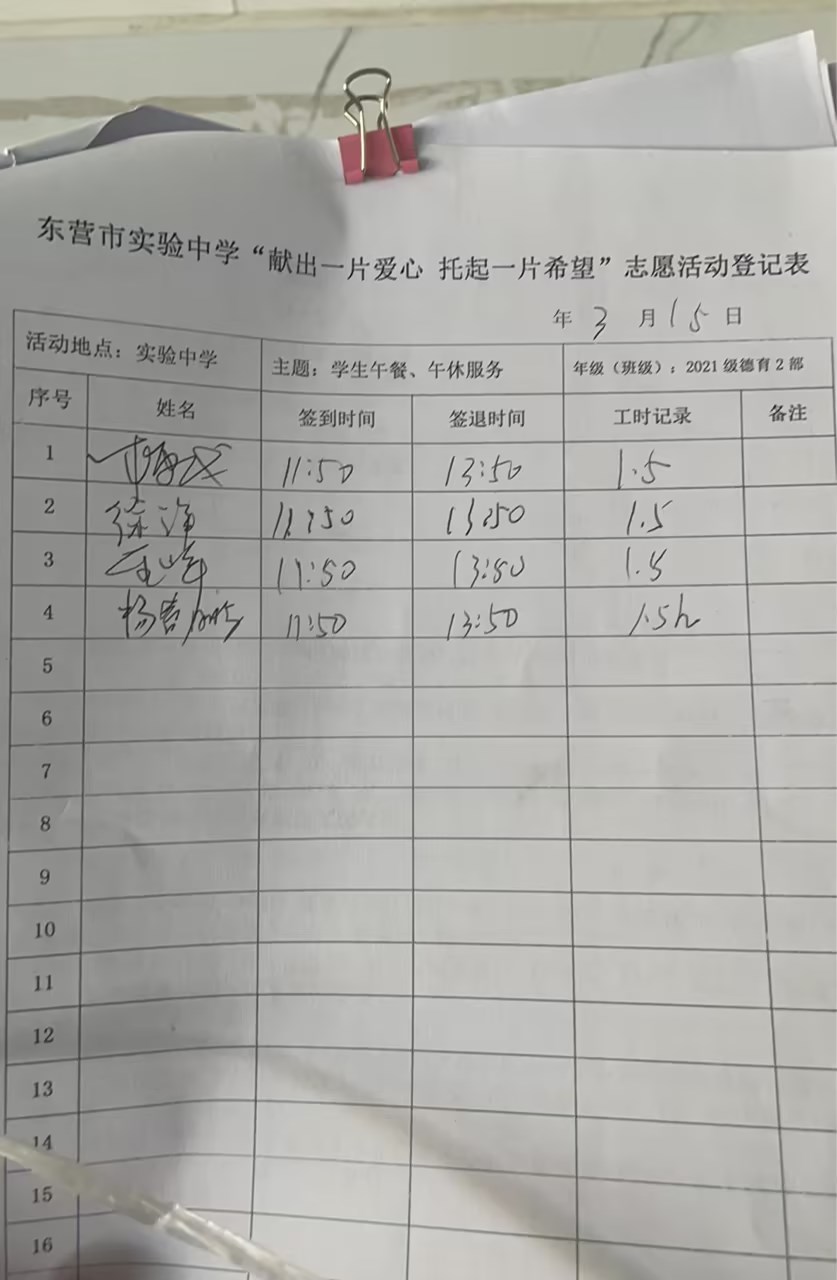 东营市实验中学“献出一片爱心 托起一片希望”志愿活动登记表
年 3 月 15 日
活动地点：实验中学 主题：学生午餐、午休服务 年级（班级）：2021 级德育 2 部
序号 姓名 签到时间 签退时间 工时记录 备注
1 11:50 13:50 1.5
2 徐 11:50 13:50 1.5
3 11:50 13:50 1.5
4 杨 11:50 13:50 1.5h
5
6
7
8
9
10
11
12
13
14
15
16